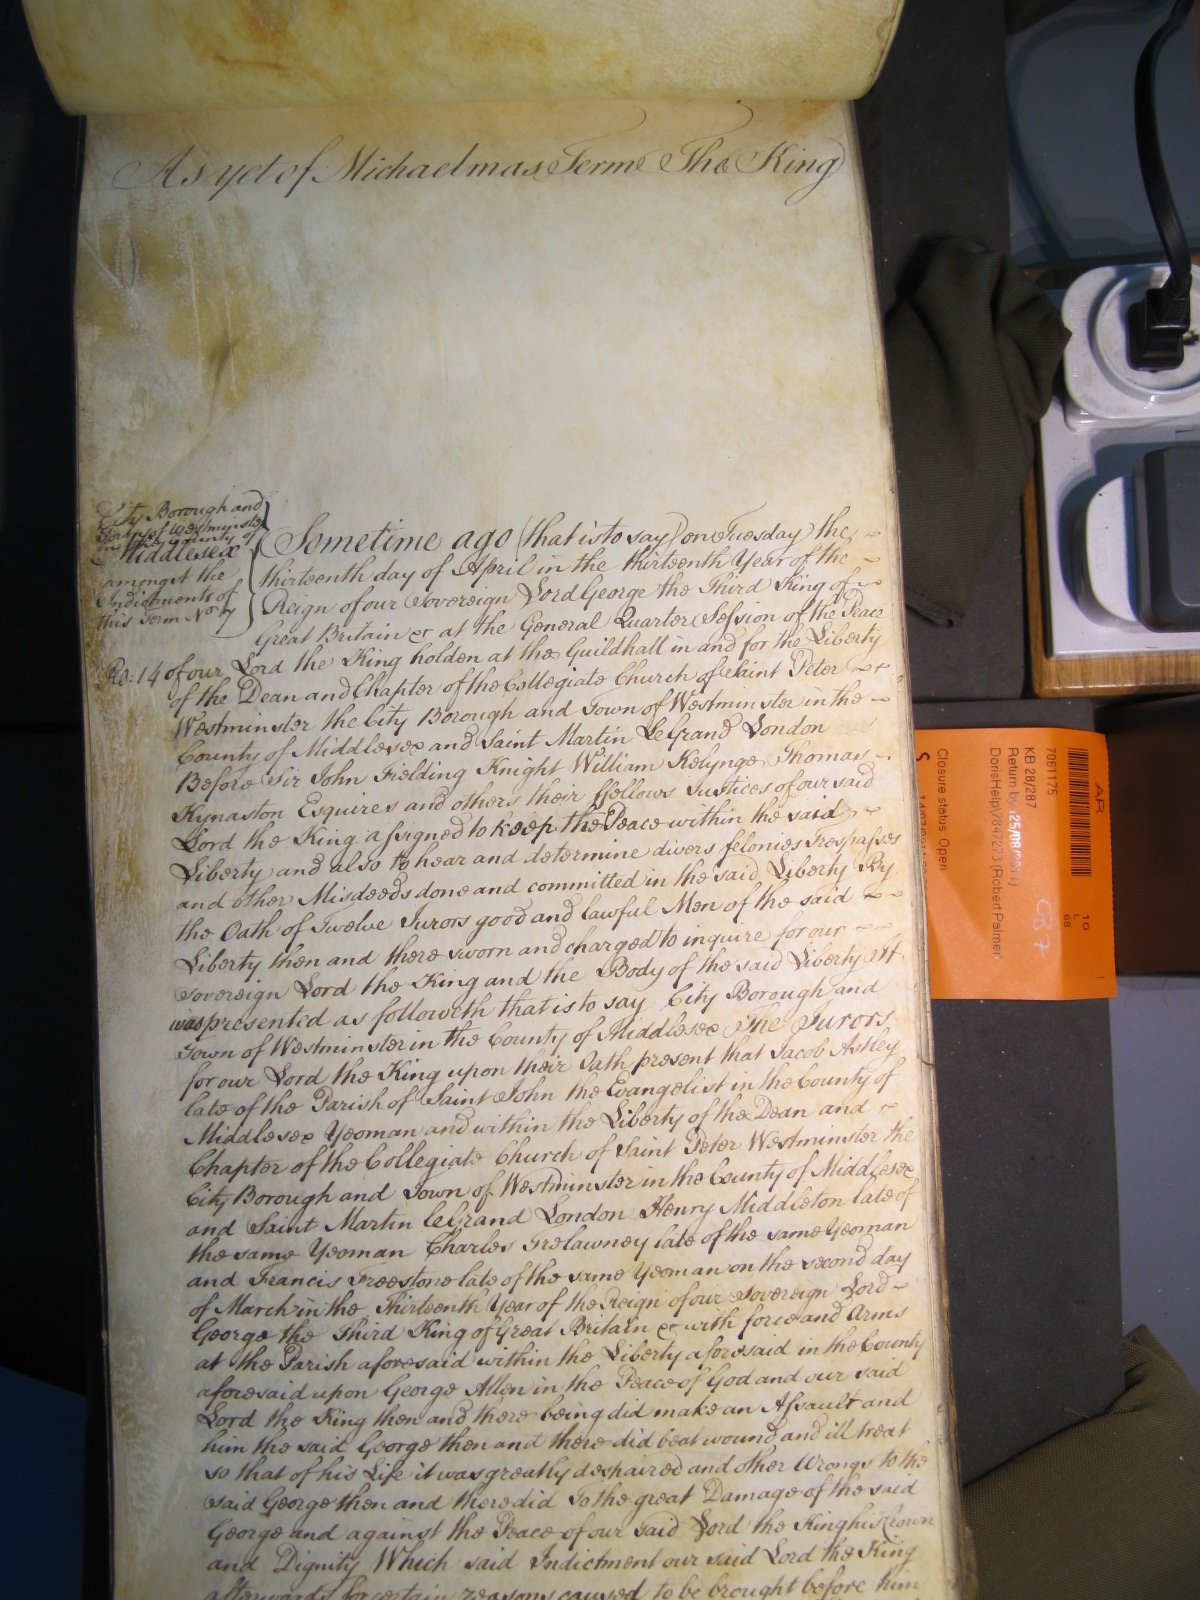 As yet of Michaelmas Terme The King
City Borough and
Town of Westminster
in the County of
Middlesex
amongst the
Indictments of
this Term No 7
Ro: 14
Sometime ago (that is to say) on Tuesday the
thirteenth day of April in the thirteenth Year of the
Reign of our Sovereign Lord George the Third King of
Great Britain &c at the General Quarter Session of the Peace
of our Lord the King holden at the Guildhall in and for the Liberty
of the Dean and Chapter of the Collegiate Church of Saint Peter
Westminster the City Borough and Town of Westminster in the
County of Middlesex and Saint Martin Le Grand London
Before Sir John Fielding Knight William Kelynge Thomas
Kynaston Esquires and others their fellows Justices of our said
Lord the King assigned to keep the Peace within the said
Liberty and also to hear and determine divers felonies Trespasses
and other Misdeeds done and committed in the said Liberty By
the Oath of Twelve Jurors good and lawful Men of the said
Liberty then and there sworn and charged to inquire for our
Sovereign Lord the King and the Body of the said Liberty It
was presented as followeth that is to say City Borough and
Town of Westminster in the County of Middlesex The Jurors
for our Lord the King upon their Oath present that Jacob Astley
late of the Parish of Saint John the Evangelist in the County of
Middlesex Yeoman and within the Liberty of the Dean and
Chapter of the Collegiate Church of Saint Peter Westminster the
City Borough and Town of Westminster in the County of Middlesex
and Saint Martin leGrand London Henry Middleton late of
the same Yeoman Charles Trelawney late of the same Yeoman
and Francis Freestone late of the same Yeoman on the second day
of March in the Thirteenth Year of the Reign of our Sovereign Lord
George the Third King of Great Britain &c with force and Arms
at the Parish aforesaid within the Liberty aforesaid in the County
aforesaid upon George Allen in the Peace of God and our said
Lord the King then and there being did make an Assault and
him the said George then and there did beat wound and ill treat
so that of his Life it was greatly despaired and other Wrongs to the
said George then and there did To the great Damage of the said
George and against the Peace of our said Lord the King his Crown
and Dignity Which said Indictment our said Lord the King
afterwards for certain reasons caused to be brought before him
AR
7061175
KB 28/287
Return by (25/08/2011)
DorisHelp(7847273 (Robert Palmer
Closure status: Open
S
10
L
68